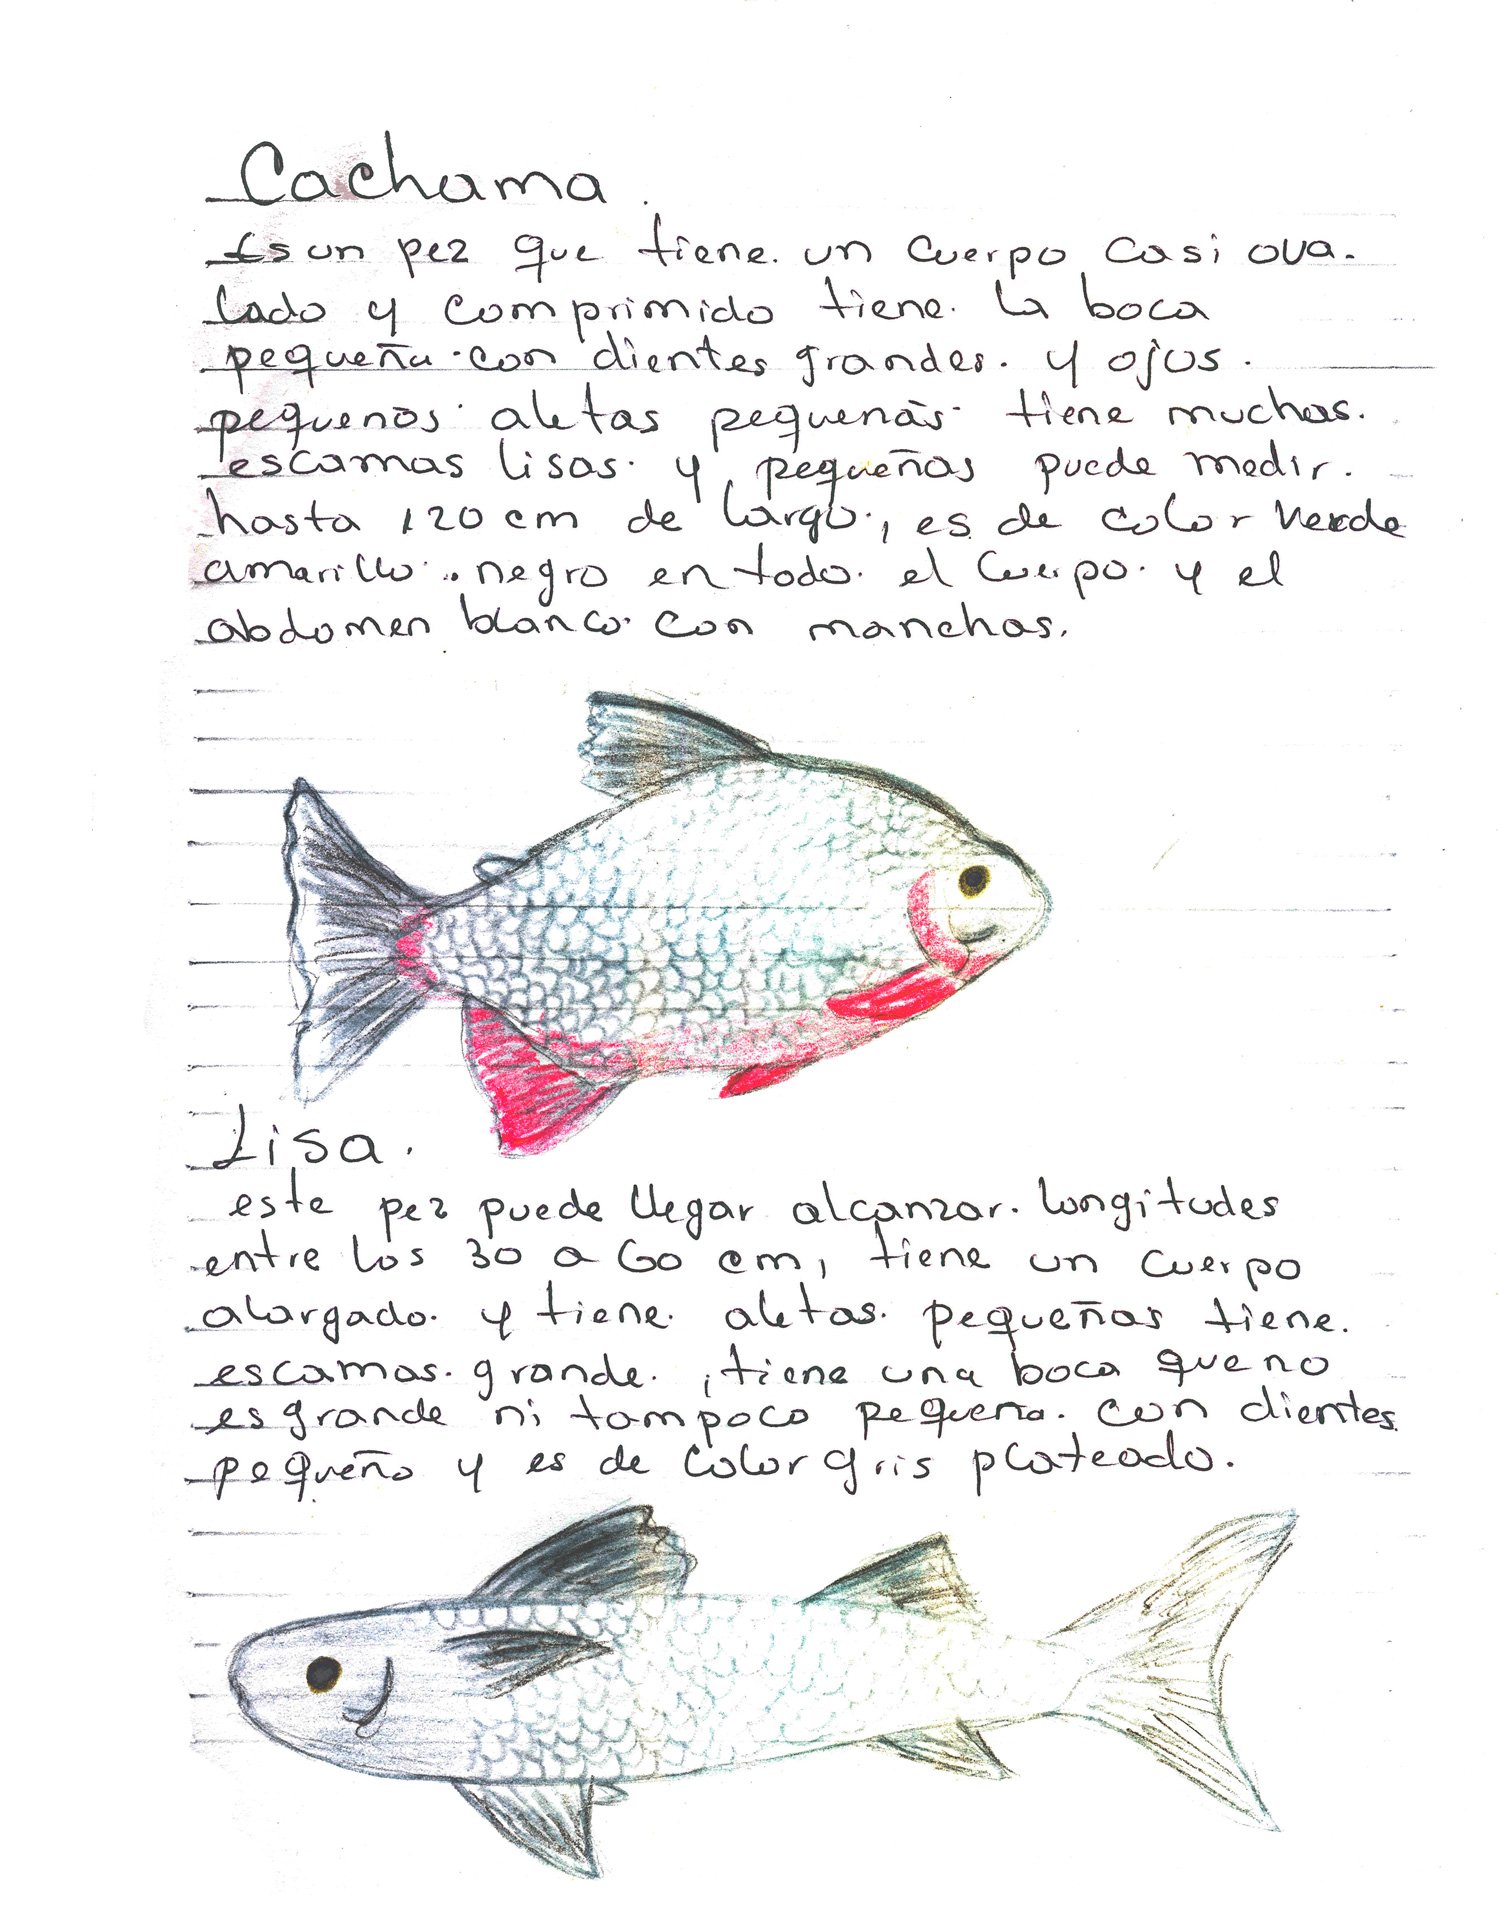 Cachama.
Es un pez que tiene. un cuerpo casi ova.
lado y comprimido tiene. la boca
pequeña. con dientes grandes. y ojos.
pequenos. aletas pequenas. tiene muchas.
escamas lisas. y pequeñas puede medir.
hasta 120 cm de largo., es de color verde
amarillo.. negro en todo. el cuerpo. y el
abdomen blanco. con manchas.
Lisa.
este pez puede llegar alcanzar. longitudes
entre los 30 a 60 cm, tiene un cuerpo
alargado. y tiene. aletas. pequeñas tiene.
escamas. grande. , tiene una boca que no
es grande ni tampoco pequeña. con dientes.
pequeño y es de color gris plateado.